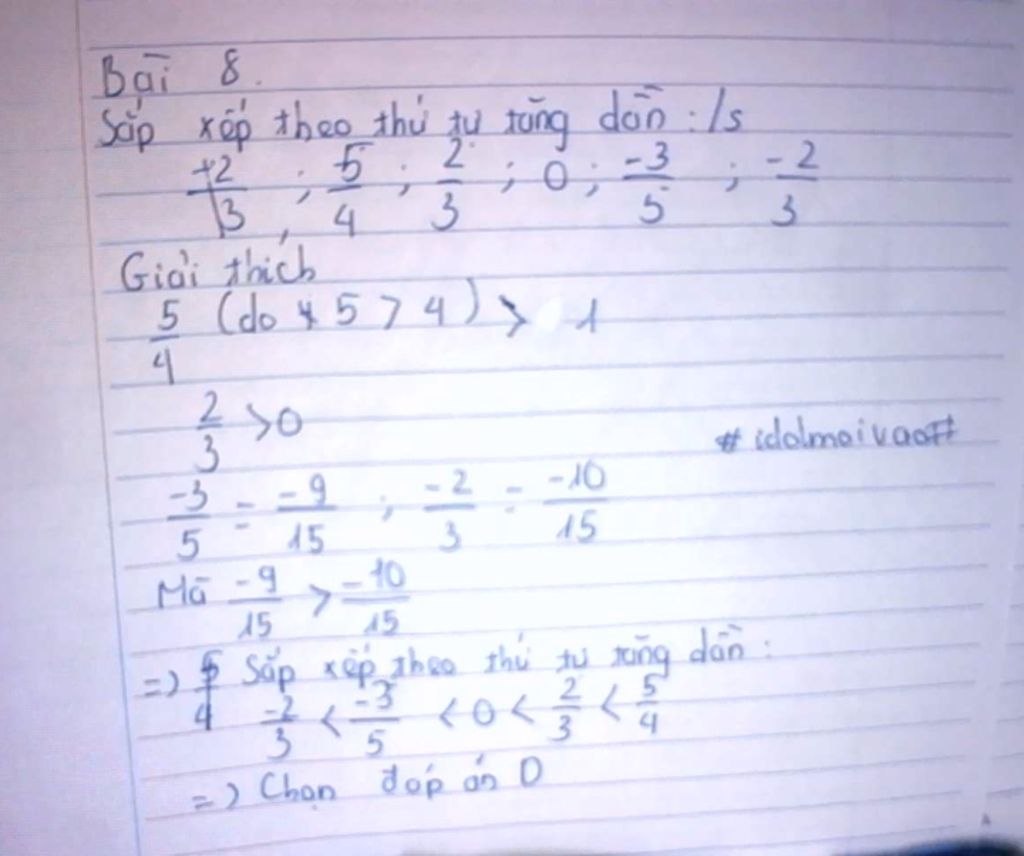 Bài 8.
Sắp xếp theo thứ tự tăng dần : /s
5/4 ; 2/3 ; 0 ; -3/5 ; -2/3
Giải thích
5/4 (do 5 > 4) > 1
2/3 > 0
#idolmoivao#
-3/5 = -9/15 ; -2/3 = -10/15
Mà -9/15 > -10/15
=> Sắp xếp theo thứ tự tăng dần :
-2/3 < -3/5 < 0 < 2/3 < 5/4
=> Chọn đáp án D